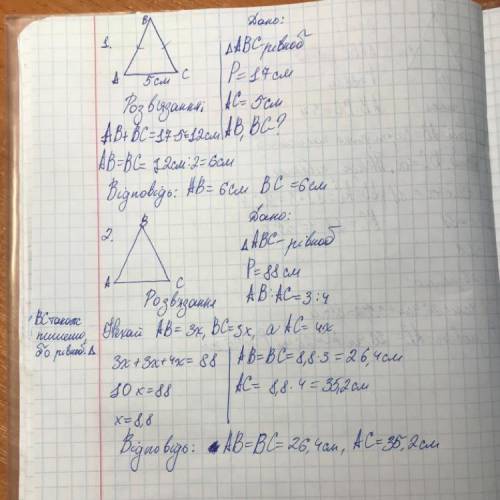 1.
B
A
5см
C
Дано:
△ABC-рівноб
P = 17см
AC = 5см
AB, BC-?
Розв'язання
AB+BC=17-5=12см
AB=BC= 12см:2=6см
Відповідь: AB = 6см BC = 6см
2.
B
A
C
Дано:
△ABC-рівноб
P = 88см
AB:AC=3:4
Розв'язання
ВС також
пишемо,
бо рівноб. △
Нехай AB = 3x, BC=3x, а AC = 4x
3x+3x+4x= 88
10x=88
x=8,8
AB=BC=8,8·3=26,4см
AC= 8,8·4=35,2см
Відповідь: AB=BC=26,4см, AC=35,2см